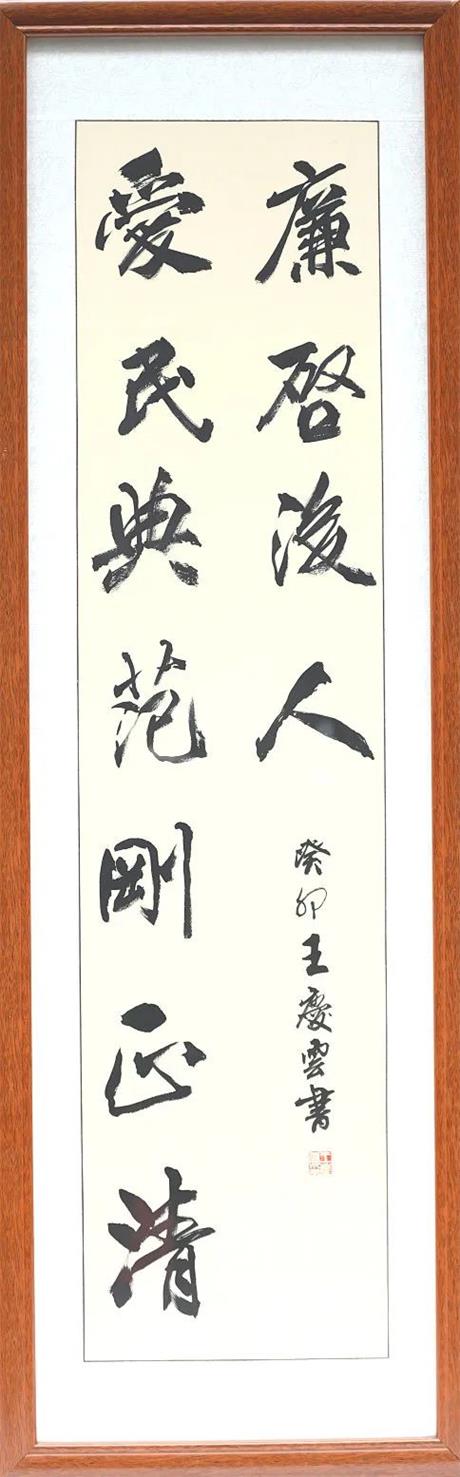 愛民典范剛正清
廉啓後人
癸卯王慶雲書